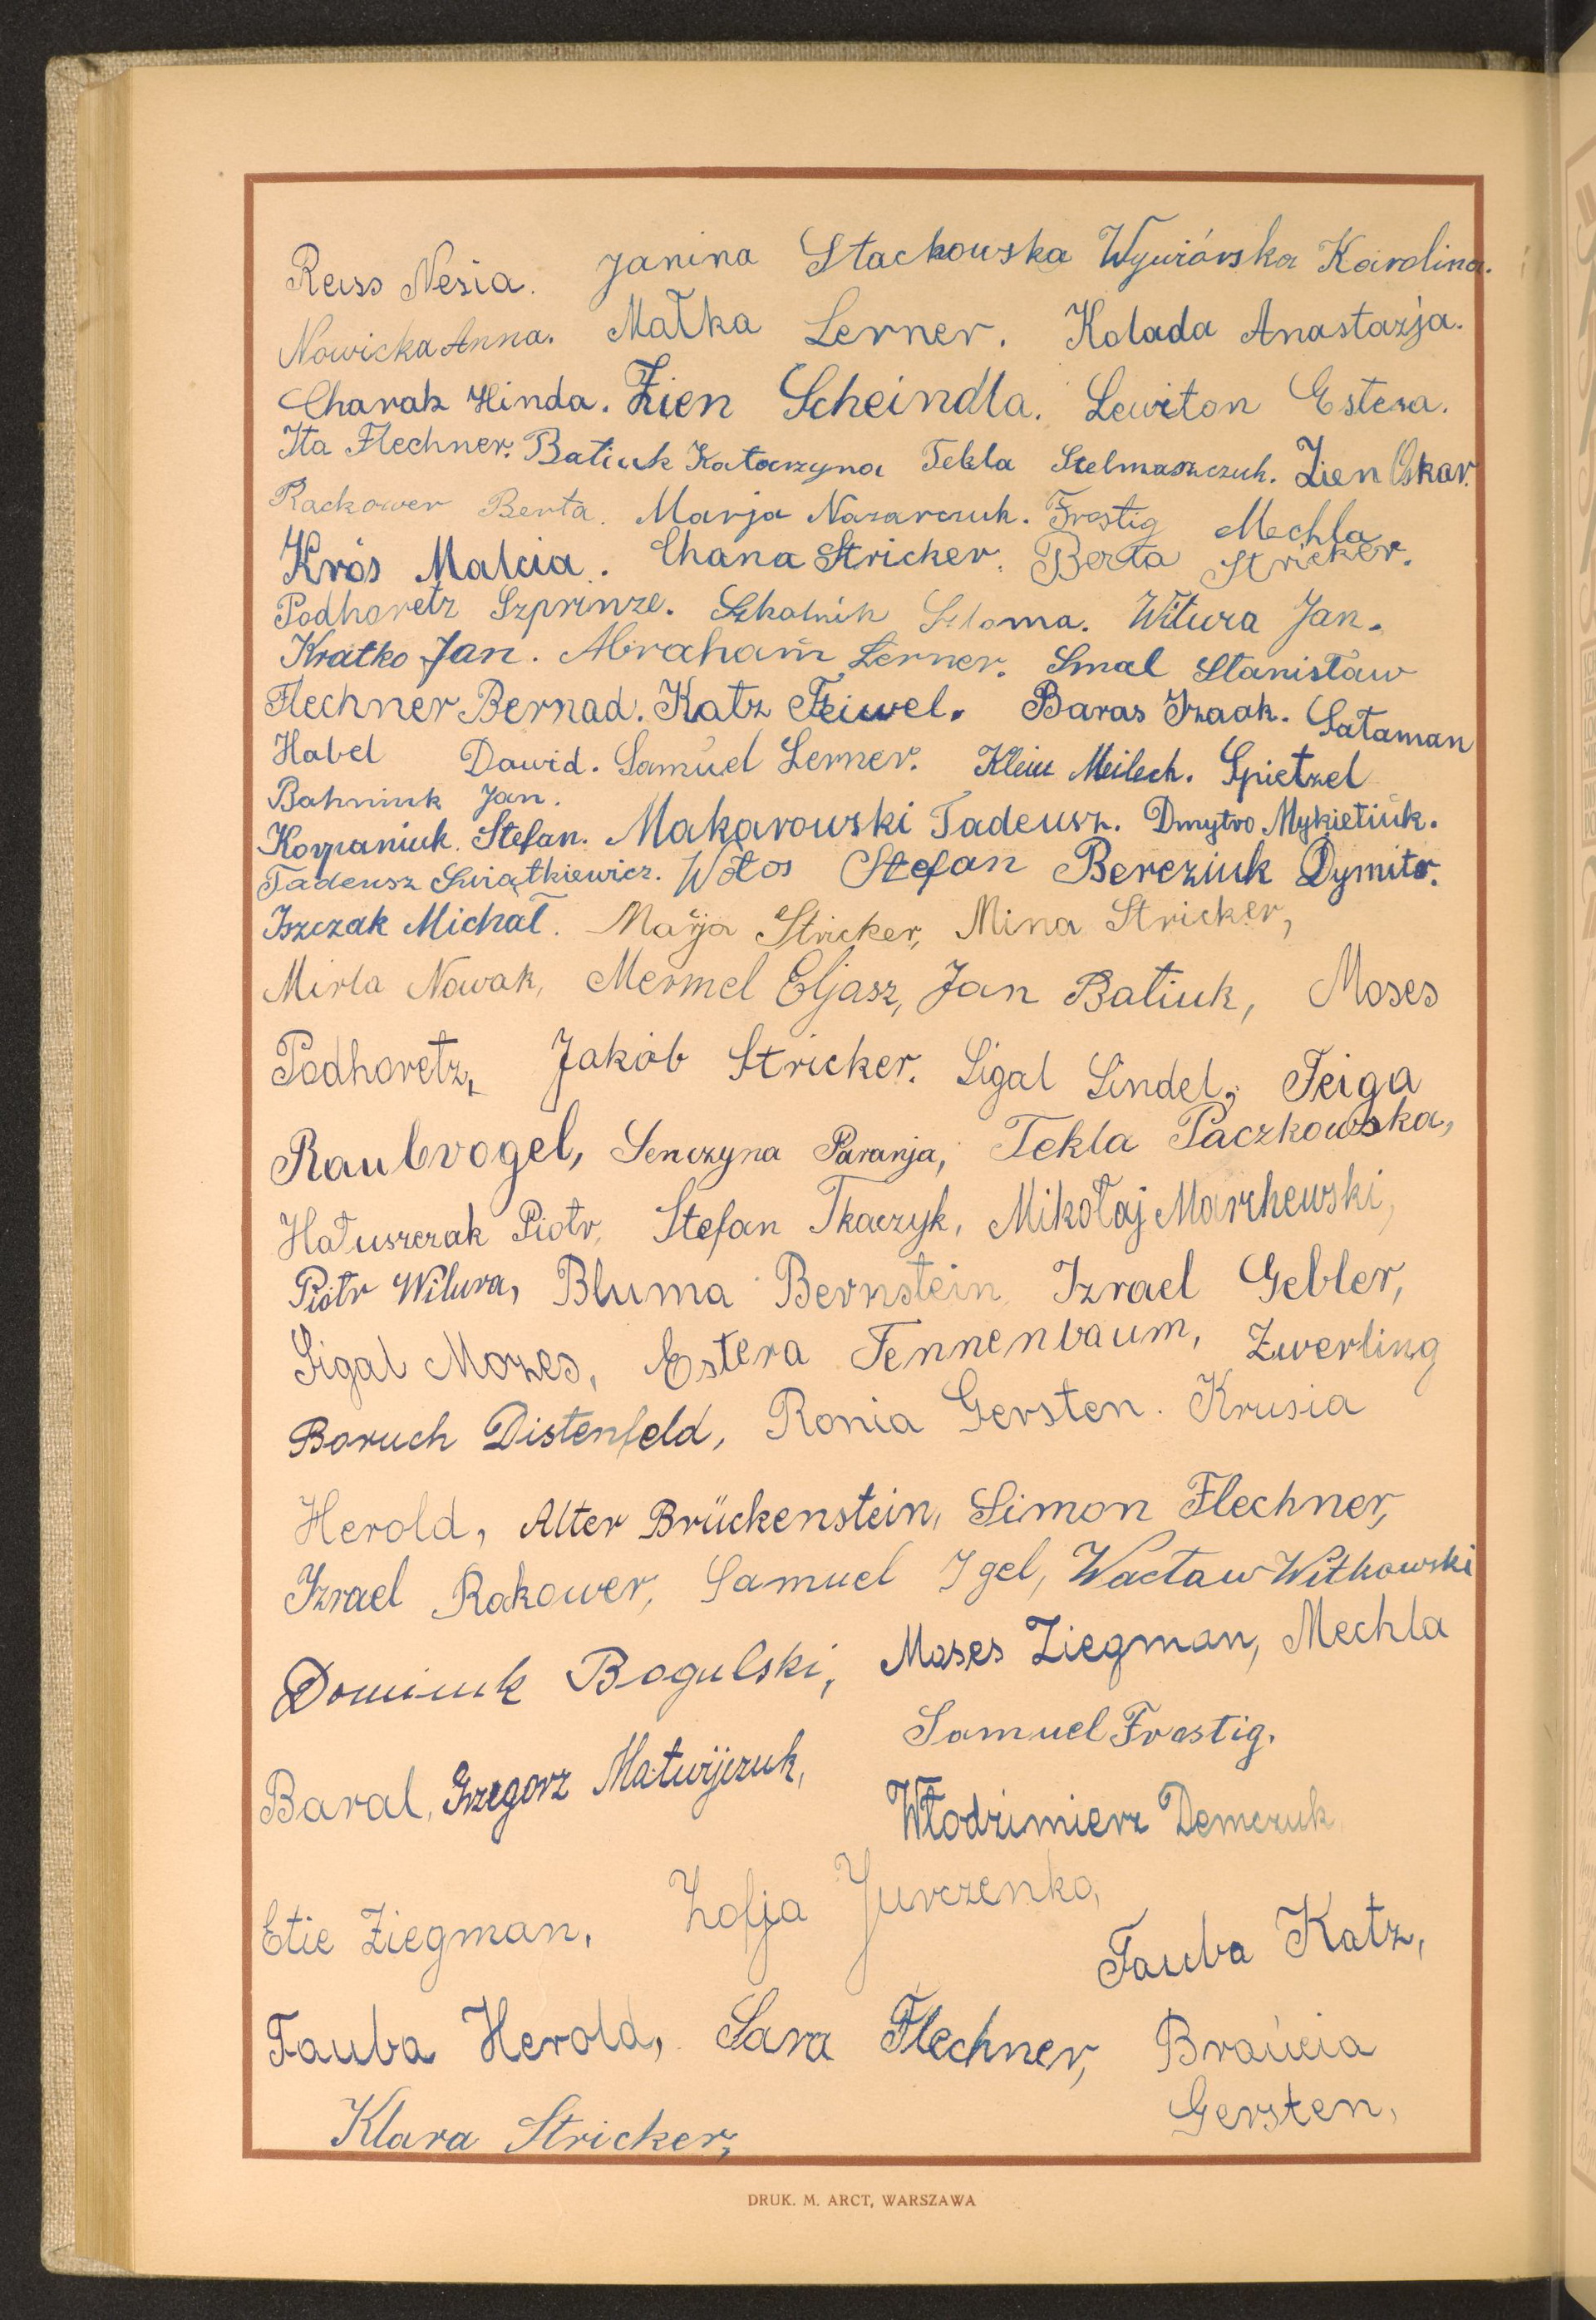 Reiss Nesia. Janina Stachowska Wywiórska Karolina.
Nowicka Anna. Małka Lerner. Kolada Anastazja.
Charak Hinda. Zien Scheindla. Lewiton Estera.
Ita Flechner. Batiuk Katarzyna Tekla Stelmaszczuk. Zien Oskar.
Rackower Berta. Marja Nazarczuk. Frostig Mechla
Krös Malcia. Chana Stricker. Berta Stricker.
Podhoretz Szprinze. Szkolnik Szloma. Witura Jan.
Kratko Jan. Abraham Lerner. Smal Stanisław
Flechner Bernad. Katz Feiwel. Baras Izaak. Sataman
Habel Dawid. Samuel Lerner. Klein Meilech. Spietzel
Bahniuk Jan.
Korpaniuk Stefan. Makarowski Tadeusz. Dmytro Mykietiuk.
Tadeusz Świątkiewicz. Wołos Stefan Bereziuk Dymitr.
Iszczak Michał. Marja Stricker, Mina Stricker,
Mirla Nowak, Mermel Eljasz, Jan Batiuk, Moses
Podhoretz, Jakób Stricker. Sigal Sindel, Feiga
Raubvogel, Senczyna Paranja, Tekla Paczkowska,
Hałuszczak Piotr, Stefan Tkaczyk, Mikołaj Marzhewski,
Piotr Witura, Bluma Bernstein Izrael Gebler,
Sigal Mozes, Estera Tennenbaum, Zwerling
Boruch Distenfeld, Ronia Gersten. Krusia
Herold, Alter Brückenstein, Simon Flechner,
Izrael Rakower, Samuel Igel, Wacław Witkowski
Dominik Bogulski, Moses Ziegman, Mechla
Samuel Frostig.
Baral, Grzegorz Matwijczuk,
Włodzimierz Demczuk
Etie Ziegman, Zofja Jurczenko,
Tauba Katz,
Tauba Herold, Sara Flechner, Brańcia
Gersten,
Klara Stricker,
DRUK. M. ARCT, WARSZAWA